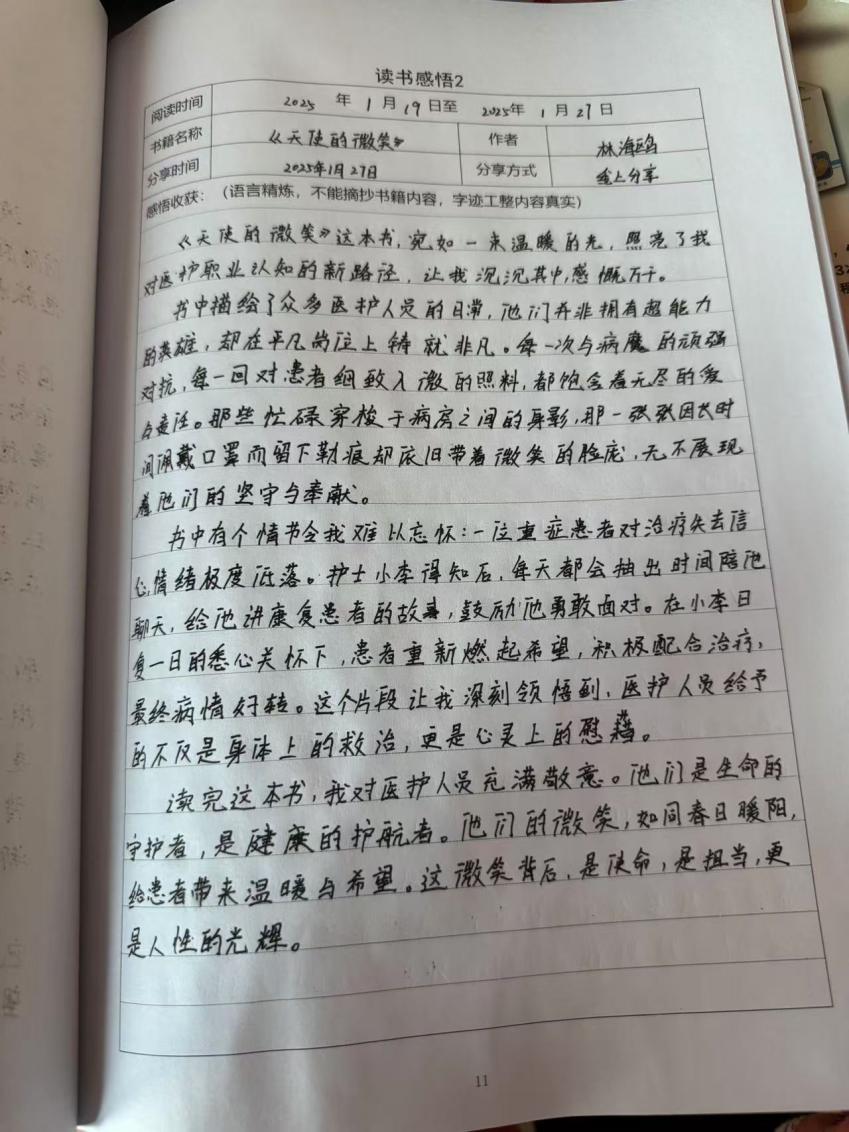 读书感悟2
阅读时间 2025 年 1 月 19 日至 2025年 1 月 27 日
书籍名称 《天使的微笑》 作者 林海鸥
分享时间 2025年1月27日 分享方式 线上分享
感悟收获：（语言精炼，不能摘抄书籍内容，字迹工整内容真实）
《天使的微笑》这本书，宛如一束温暖的光，照亮了我
对医护职业认知的新路径，让我沉沉其中，感慨万千。
书中描绘了众多医护人员的日常，他们并非拥有超能力
的英雄，却在平凡岗位上铸就非凡。每一次与病魔的顽强
对抗，每一回对患者细致入微的照料，都饱含着无尽的爱
与责任。那些忙碌穿梭于病房之间的身影，那一张张因长时
间佩戴口罩而留下勒痕却依旧带着微笑的脸庞，无不展现
着他们的坚守与奉献。
书中有个情节令我难以忘怀：一位重症患者对治疗失去信
心，情绪极度低落。护士小李得知后，每天都会抽出时间陪他
聊天，给他讲康复患者的故事，鼓励他勇敢面对。在小李日
复一日的悉心关怀下，患者重新燃起希望，积极配合治疗，
最终病情好转。这个片段让我深刻领悟到，医护人员给予
的不仅是身体上的救治，更是心灵上的慰藉。
读完这本书，我对医护人员充满敬意。他们是生命的
守护者，是健康的护航者。他们的微笑，如同春日暖阳，
给患者带来温暖与希望。这微笑背后，是使命，是担当，更
是人性的光辉。
11